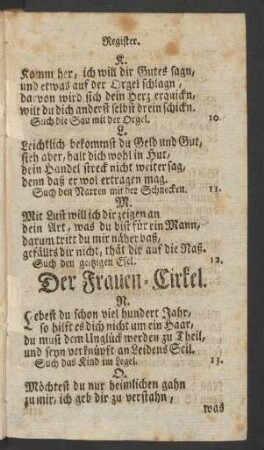 Register.
K.
Komm her, ich will dir Gutes sagn,
und etwas auf der Orgel schlagn,
da von wird sich dein Herz erquickn,
wilt du dich anderst selbst drein schickn.
Such die Sau mit der Orgel. 10.
L.
Leichtlich bekommst du Geld und Gut,
sieh aber, halt dich wohl in Hut,
dein Handel streck nicht weiter sag,
denn daß er wol ertragen mag.
Such den Narren mit der Schnecken. 11.
M.
Mit Lust will ich dir zeigen an
dein Art, was du bist für ein Mann,
darum tritt du mir näher baß,
gefällts dir nicht, thät dir auf die Naß.
Such den geitzigen Esel. 12.
Der Frauen-Cirkel.
N.
Lebest du schon viel hundert Jahr,
so hilft es dich nicht um ein Haar,
du must dem Unglück werden zu Theil,
und seyn verknüpft an Leidens Seil.
Such das Kind im Legel. 13.
O.
Möchtest du nur heimlichen gahn
zu mir, ich geb dir zu verstahn,
was